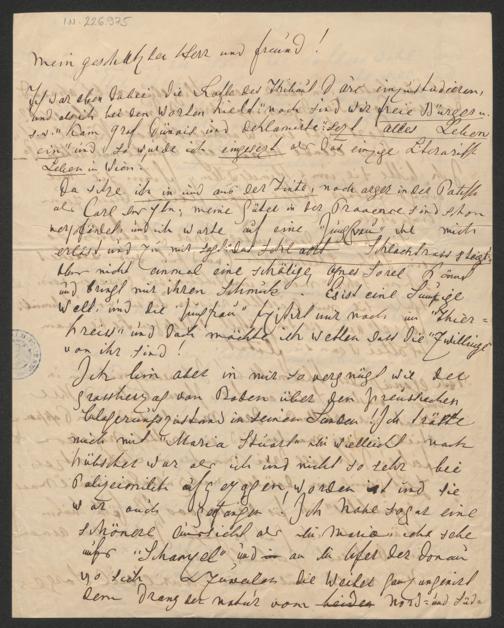 I.N. 226.975
Mein geschätzter Herr und Freund!
Ich war eben dabei die Rolle des Thibaut D'arc einzustudieren,
und als ich bei den Worten hielt: "noch sind wir freie Bürger u.
s.w." kam Graf Dunois und deklamirte: "setzt alles Leben
ein" und so wurde ich eingesetzt als das einzige Literarische
Leben in Wien.
Da sitze ich in und aus der Tinte, noch ärger in der Patsche
als Carl der 7te; meine Güter in der Provence sind schon
verpfändet und ich warte auf eine "Jungfrau" die mich
erlöst und zu mir sagt: das Schlachtross steigt
Aber nicht einmal eine schäbige Agnes Sorel kommt
und bringt mir ihren Schmuck. Es ist eine
Welt und die "Jungfrau" existirt nur noch im "Thier=
kreis" und da möchte ich wetten dass die "Zwillinge"
von ihr sind!
Ich bin aber in mir so vergnügt wie der
Grossherzog von Baden über den Preussischen
Belagerungszustand in seinen Landen! Ich tröste
mich mit "Maria Stuart" die vielleicht noch
hübscher war als ich und nicht so sehr bei
Polizeimilch aufgezogen worden ist und sie
war auch gefangen! Ich habe sogar eine
schönere Aussicht als die Maria, ich sehe
aufs "Schanzel" und an die Ufer der Donau
wo sich die Weiber ganz ungenirt
dem Drang der Natur vom Nord= und Süd=